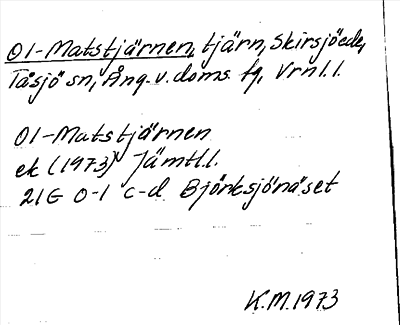 Ol-Matstjärnen, tjärn, Skirsjöede,
Tåsjö sn, Ång. v. doms. fg, Vrnl. l.
Ol-Matstjärnen
ek (1973) Jämtl. l.
21G 0-1 c-d. Björksjönäset
K.M. 1973